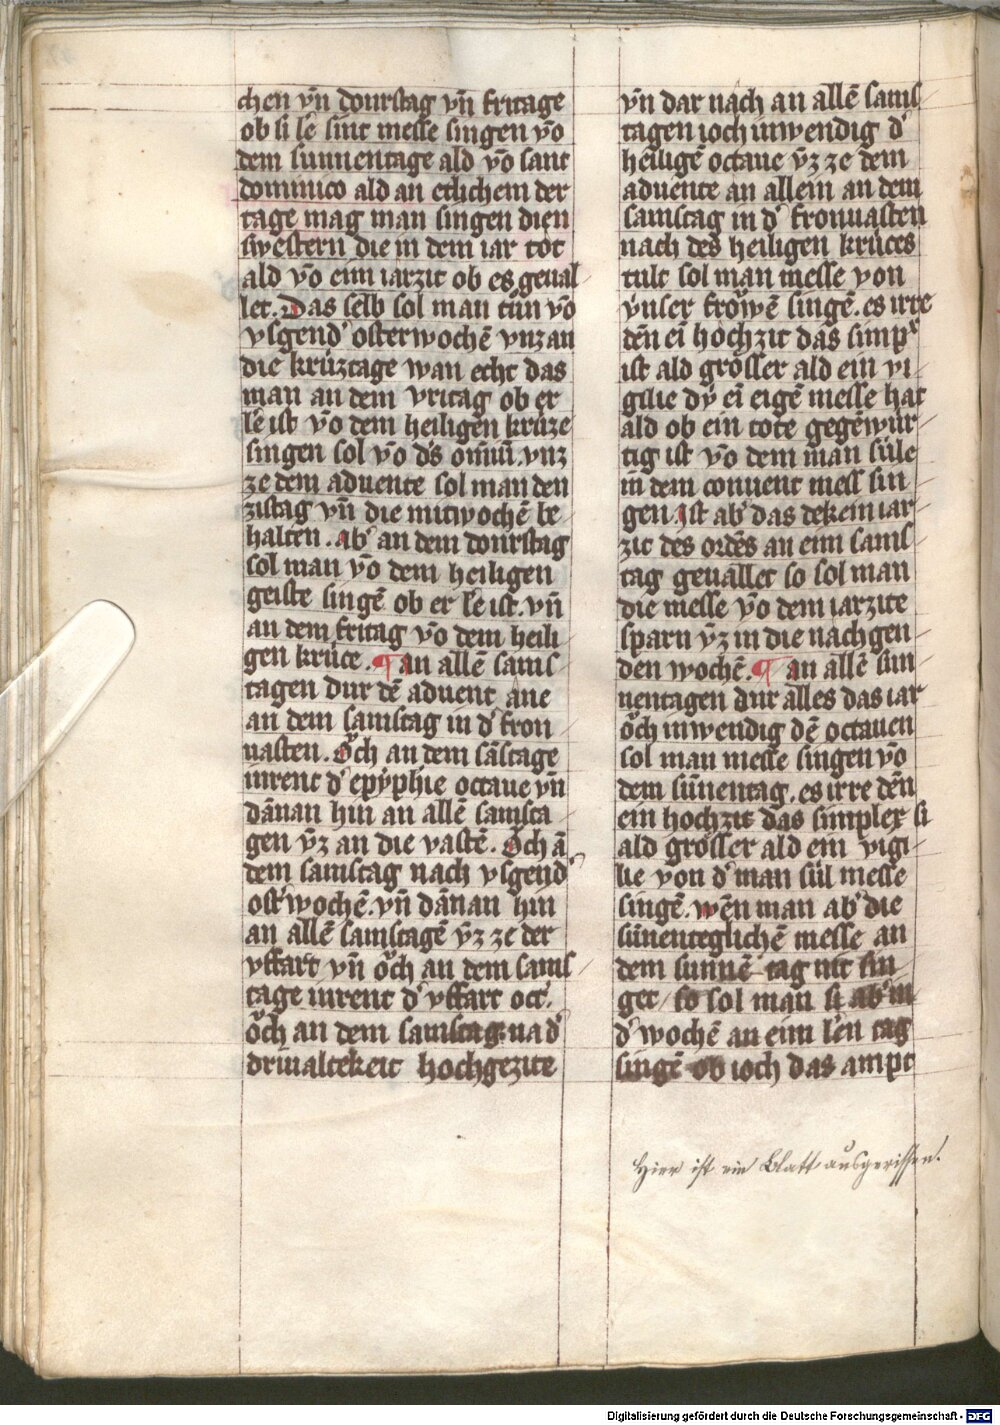 chen vn̄ donrstag vn̄ fritage
ob si le sint messe singen vō
dem sunnentage ald vō sant
dominico ald an etlichem der
tage mag man singen dien
swestern die in dem iar tot
ald vō eim iarzit ob es geual
let. Das selb sol man tůn vō
vsgend' osterwochē vnz an
die krúztage wan echt das
man an dem vritag ob er
le ist vō dem heiligen krúze
singen sol vō d's om̄iū. vnz
ze dem aduente sol man den
zistag vn̄ die mitwochē be
halten. ab' an dem donrstag
sol man vō dem heiligen
geiste singē ob er le ist. vn̄
an dem fritag vō dem heili
gen krúce. ¶ an allē sams
tagen dur dē aduent ane
an dem samstag in d' fron
uasten. Och an dem sāstage
inrent d' epyphie octaue vn̄
dānan hin an allē samsta
gen v̄z an die vastē. Och ā
dem samstag nach vsgend'
ost'wochē. vn̄ dānan hin
an allē samstagē v̄z ze der
vffart vn̄ ŏch an dem sams
tage inrent d' vffart oct'.
ŏch an dem samstag na d'
driualtekeit hochgezite
vn̄ dar nach an allē sams
tagen ioch inwendig d'
heiligē octaue v̄z ze dem
aduente an allein an dem
samstag in d' fronuasten
nach des heiligen krúces
tult sol man messe von
vnser frŏwē singē. es irre
dēn eī hochzit das simp'
ist ald grŏsser ald ein vi
gilie dv́ eī eigē messe hat
ald ob ein tote gegēwúr
tig ist vō dem man súle
in dem conuent mess sin
gen. Ist ab' das dekein iar
zit des ordēs an eim sams
tag geuallet so sol man
die messe vō dem iarzite
sparn v̄z in die nachgen
den wochē. ¶ an allē sun
nentagen dur alles das iar
ŏch inwendig dē octauen
sol man messe singen vō
dem sūnentag. es irre dēn
ein hochzit das simplex si
ald grŏsser ald ein vigi
lie von d' man súl messe
singē. wēn man ab' die
sūnenteglichē messe an
dem sunnē tag nit sin
get / so sol man si ab' in
d' wochē an eim lēn tag
singē ob ioch das ampt
Hier ist ein Blatt ausgerissen.
Digitalisierung gefördert durch die Deutsche Forschungsgemeinschaft - DFG